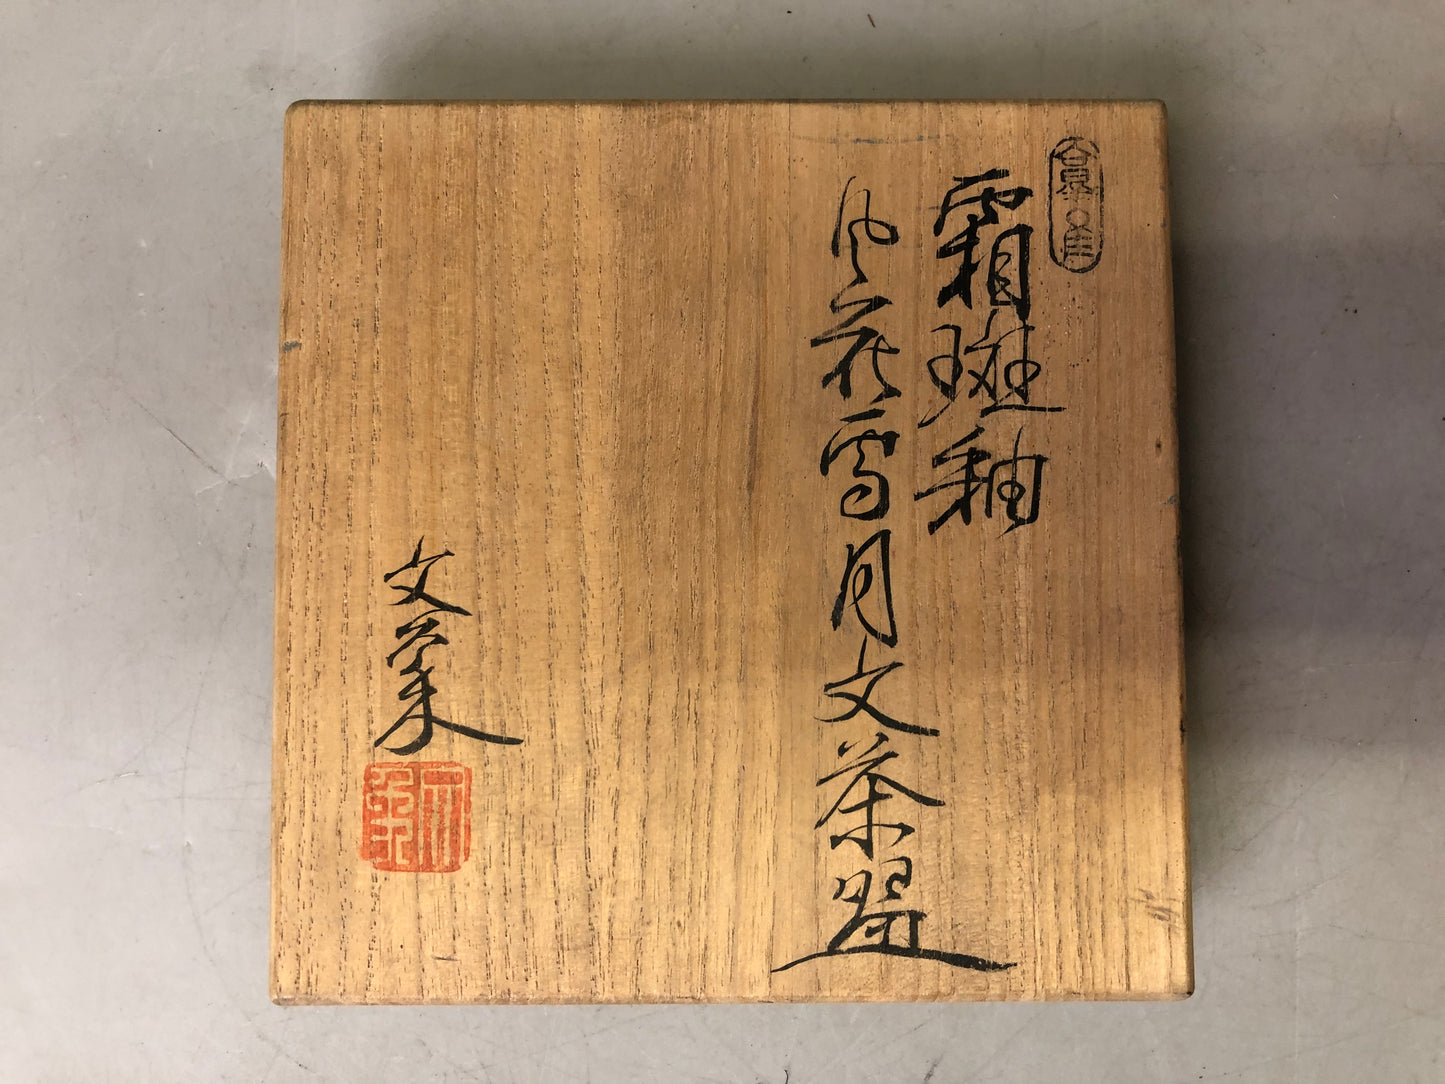 霜斑釉
風花雪月文茶盌
文